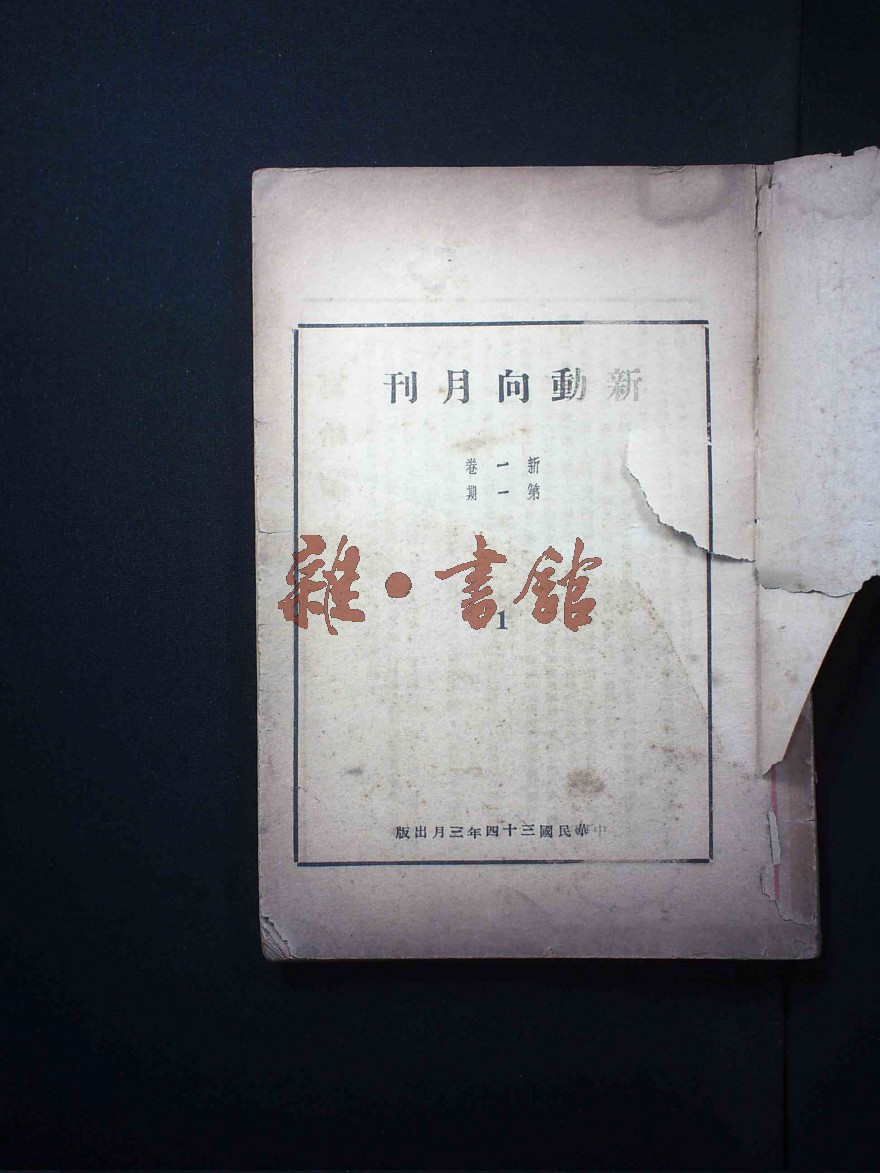 新動向月刊
新一卷
第一期
雜·書館
1
中華民國三十四年三月出版